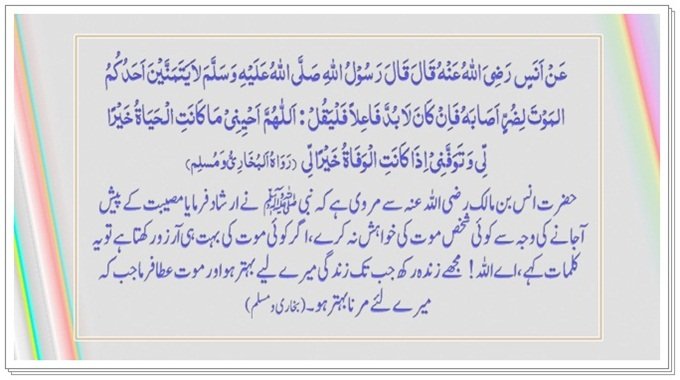 عَنْ اَنَسٍ رَضِیَ اللهُ عَنْهُ قَالَ قَالَ رَسُوْلُ اللهِ صَلَّی اللهُ عَلَیْهِ وَسَلَّمَ لَا یَتَمَنَّیَنَّ اَحَدُکُمُ
الْمَوْتَ لِضُرٍّ اَصَابَهٗ فَاِنْ کَانَ لَا بُدَّ فَاعِلاً فَلْیَقُلْ: اَللّٰهُمَّ اَحْیِنِیْ مَا کَانَتِ الْحَیَاةُ خَیْرًا
لِّیْ وَ تَوَفَّنِیْ اِذَا کَانَتِ الْوَفَاةُ خَیْرًا لِّیْ (رَوَاهُ الْبُخَارِیُّ وَمُسْلِم)
حضرت انس بن مالک رضی اللہ عنہ سے مروی ہے کہ نبی ﷺ نے ارشاد فرمایا مصیبت کے پیش
آجانے کی وجہ سے کوئی شخص موت کی خواہش نہ کرے، اگر کوئی موت کی بہت ہی آرزو رکھتا ہے تو یہ
کلمات کہے، اے اللہ! مجھے زندہ رکھ جب تک زندگی میرے لیے بہتر ہو اور موت عطا فرما جب کہ
میرے لئے مرنا بہتر ہو۔ (بخاری و مسلم)